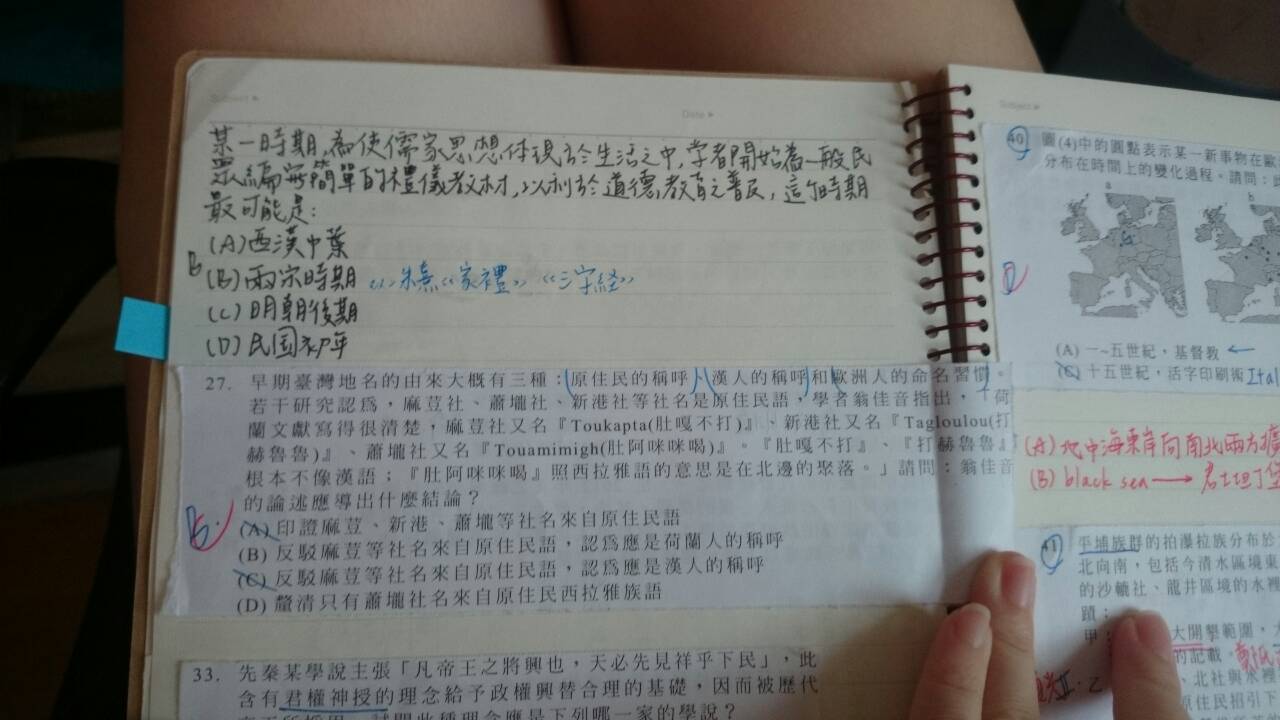 Subject▸
Date▸
某一時期,為使儒家思想体現於生活之中,学者開始為一般民
眾編寫簡單的禮儀教材,以利於道德教育之普及,這個時期
最可能是:
(A)西漢中葉
B
(B)兩宋時期 朱熹《家禮》《三字経》
(C)明朝後期
(D)民国初年
27. 早期臺灣地名的由來大概有三種:原住民的稱呼、漢人的稱呼和歐洲人的命名習慣。
若干研究認為,麻荳社、蕭壠社、新港社等社名是原住民語,學者翁佳音指出,「荷
蘭文獻寫得很清楚,麻荳社又名『Toukapta(肚嘎不打)』、新港社又名『Tagloulou(打
赫魯魯)』、蕭壠社又名『Touamimigh(肚阿咪咪喝)』。『肚嘎不打』、『打赫魯魯』
根本不像漢語;『肚阿咪咪喝』照西拉雅語的意思是在北邊的聚落。」請問:翁佳音
的論述應導出什麼結論?
B.
(A) 印證麻荳、新港、蕭壠等社名來自原住民語
(B) 反駁麻荳等社名來自原住民語,認為應是荷蘭人的稱呼
(C) 反駁麻荳等社名來自原住民語,認為應是漢人的稱呼
(D) 釐清只有蕭壠社名來自原住民西拉雅族語
33. 先秦某學說主張「凡帝王之將興也,天必先見祥乎下民」,此
含有君權神授的理念給予政權興替合理的基礎,因而被歷代
Subject▸
40. 圖(4)中的圓點表示某一新事物在歐
分布在時間上的變化過程。請問:此
a
b
D
(A) 一~五世紀,基督教
(C) 十五世紀,活字印刷術 Ital
(A) 地中海東岸向南北兩方擴
(B) black sea → 君士坦丁堡
41
平埔族群的拍瀑拉族分布於
北向南,包括今清水區境東
的沙轆社、龍井區境的水裡
蹟:
甲:
大開墾範圍,
的記載。
、北社與水裡
原住民招引下